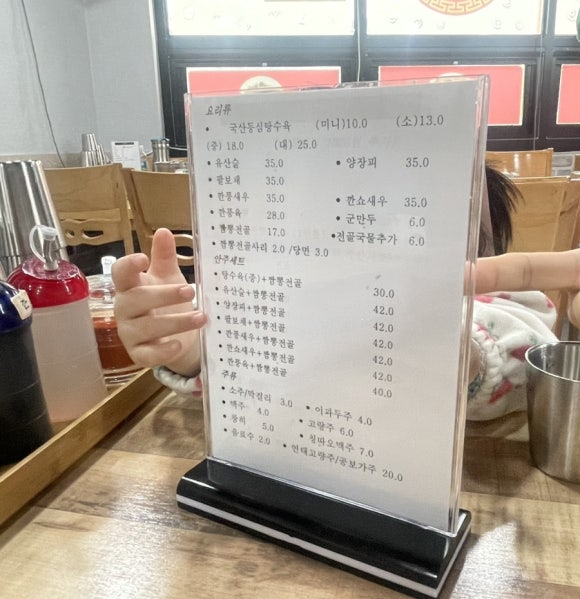 요리류
• 국산등심탕수육 (미니)10.0 (소)13.0
(중) 18.0 (대) 25.0
• 유산슬 35.0 • 양장피 35.0
• 팔보채 35.0
• 깐풍새우 35.0 • 깐쇼새우 35.0
• 깐풍육 28.0 • 군만두 6.0
• 짬뽕전골 17.0 •전골국물추가 6.0
• 짬뽕전골사리 2.0 /당면 3.0
안주세트
• 탕수육(중)+짬뽕전골 30.0
• 유산슬+짬뽕전골 42.0
• 양장피+짬뽕전골 42.0
• 팔보채+짬뽕전골 42.0
• 깐풍새우+짬뽕전골 42.0
• 깐쇼새우+짬뽕전골 42.0
• 깐풍육+짬뽕전골 40.0
주류
• 소주/막걸리 3.0 • 이과두주 4.0
• 맥주 4.0 • 고량주 6.0
• 청하 5.0 • 칭따오맥주 7.0
• 음료수 2.0 • 연태고량주/공보가주 20.0